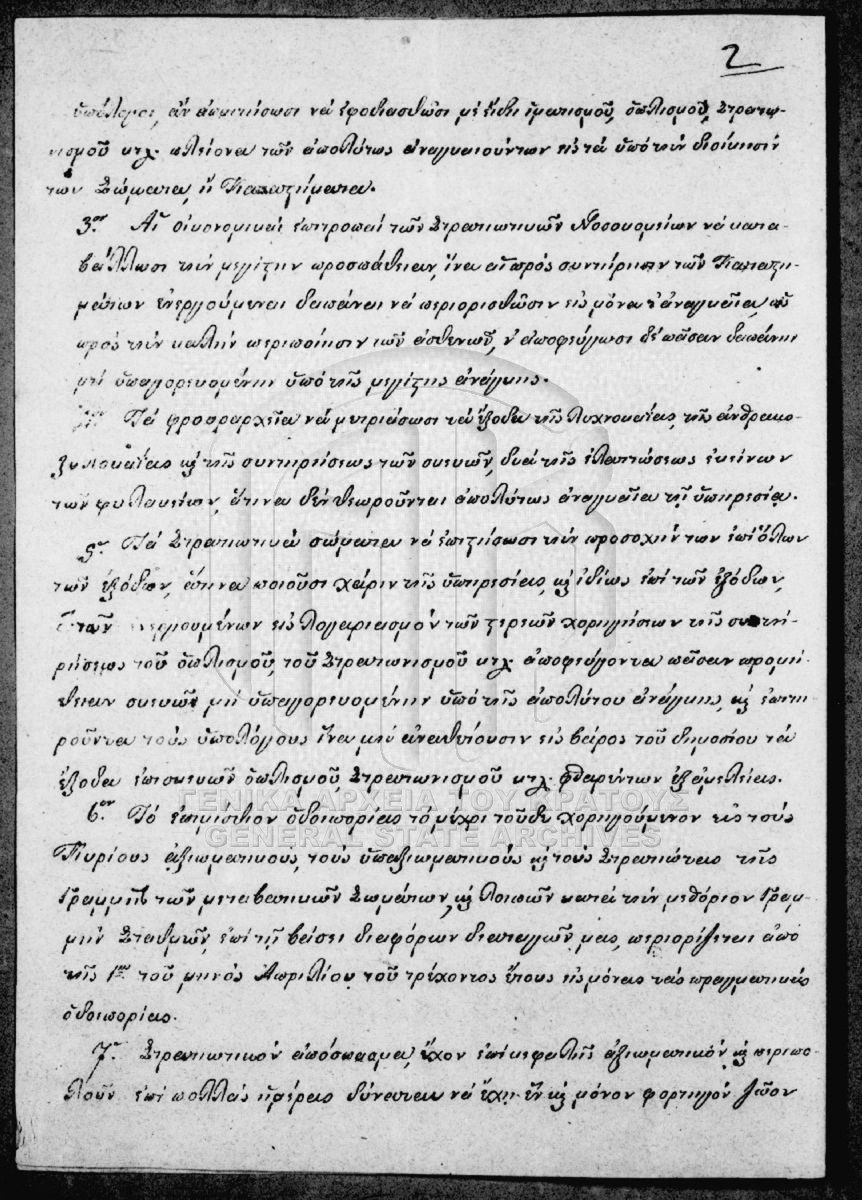 2
ὑπόλογοι, ἂν ἀπαιτήσωσι νὰ ἐφοδιασθῶσι μὲ εἴδη ἱματισμοῦ, ὁπλισμοῦ, Στρατω-
νισμοῦ κτλ. πλείονα τῶν ἀπολύτως ἀναγκαιούντων εἰς τὰ ὑπὸ τὴν διοίκησίν
των Σώματα, ἢ Καταστήματα.
3ον Αἱ οἰκονομικαὶ ἐπιτροπαὶ τῶν Στρατιωτικῶν Νοσοκομείων νὰ κατα-
βάλλωσι τὴν μεγίστην προσπάθειαν, ἵνα αἱ πρὸς συντήρησιν τῶν Καταστη-
μάτων ἐνεργούμεναι δαπάναι νὰ περιορισθῶσιν εἰς μόνα τ' ἀναγκαῖα
πρὸς τὴν καλὴν περιποίησιν τῶν ἀσθενῶν, ν' ἀποφεύγωσι δὲ πᾶσαν δαπάνην
μὴ ὑπαγορευομένην ὑπὸ τῆς μεγίστης ἀνάγκης.
Τὰ φρουραρχεῖα νὰ μετριάσωσι τὰ ἔξοδα τῆς λυχνοκαΐας, τῆς ἀνθρακο-
ξυλοκαΐας καὶ τῆς συντηρήσεως τῶν σκευῶν, διὰ τῆς ἐλαττώσεως ἐκείνων
τῶν φυλακείων, ἅτινα δὲν θεωροῦνται ἀπολύτως ἀναγκαῖα τῇ ὑπηρεσίᾳ.
5ον Τὰ Στρατιωτικὰ σώματα νὰ ἐπιστήσωσι τὴν προσοχήν των ἐπὶ ὅλων
τῶν ἐξόδων, ἅτινα ποιοῦσι χάριν τῆς ὑπηρεσίας, καὶ ἰδίως ἐπὶ τῶν ἐξόδων,
τῶν ἐνεργουμένων εἰς λογαριασμὸν τῶν στερεῶν χορηγήσεων τῆς συντη-
ρήσεως τοῦ ὁπλισμοῦ, τοῦ Στρατωνισμοῦ κτλ. ἀποφεύγοντα πᾶσαν προμή-
θειαν σκευῶν μὴ ὑπαγορευομένην ὑπὸ τῆς ἀπολύτου ἀνάγκης, καὶ ἐπιτη-
ροῦντα τοὺς ὑπολόγους ἵνα μὴ ἀναθέτουσιν εἰς βάρος τοῦ δημοσίου τὰ
ἔξοδα ἐπισκευῶν ὁπλισμοῦ, Στρατωνισμοῦ κτλ. φθαρέντων ἐξ ἀμελείας.
6ον Τὸ ἐπιμίσθιον ὁδοιπορίας τὸ μέχρι τοῦδε χορηγούμενον εἰς τοὺς
Κυρίους ἀξιωματικούς, τοὺς ὑπαξιωματικοὺς καὶ τοὺς Στρατιώτας τῆς
Γραμμῆς τῶν μεταβατικῶν Σωμάτων, καὶ λοιπῶν κατὰ τὴν μεθόριον Γραμ-
μὴν Σταθμῶν, ἐπὶ τῇ βάσει διαφόρων διαταγῶν μας, περιορίζεται ἀπὸ
τῆς 1ης τοῦ μηνὸς Ἀπριλίου τοῦ τρέχοντος ἔτους εἰς μόνας τὰς πραγματικὰς
ὁδοιπορίας.
7ον Στρατιωτικὸν ἀπόσπασμα, ἔχον ἐπὶ κεφαλῆς ἀξιωματικόν, καὶ περιπο-
λοῦν ἐπὶ πολλὰς ἡμέρας δύναται νὰ ἔχῃ ἓν καὶ μόνον φορτηγὸν ζῶον
ΓΕΝΙΚΑ ΑΡΧΕΙΑ ΤΟΥ ΚΡΑΤΟΥΣ
GENERAL STATE ARCHIVES